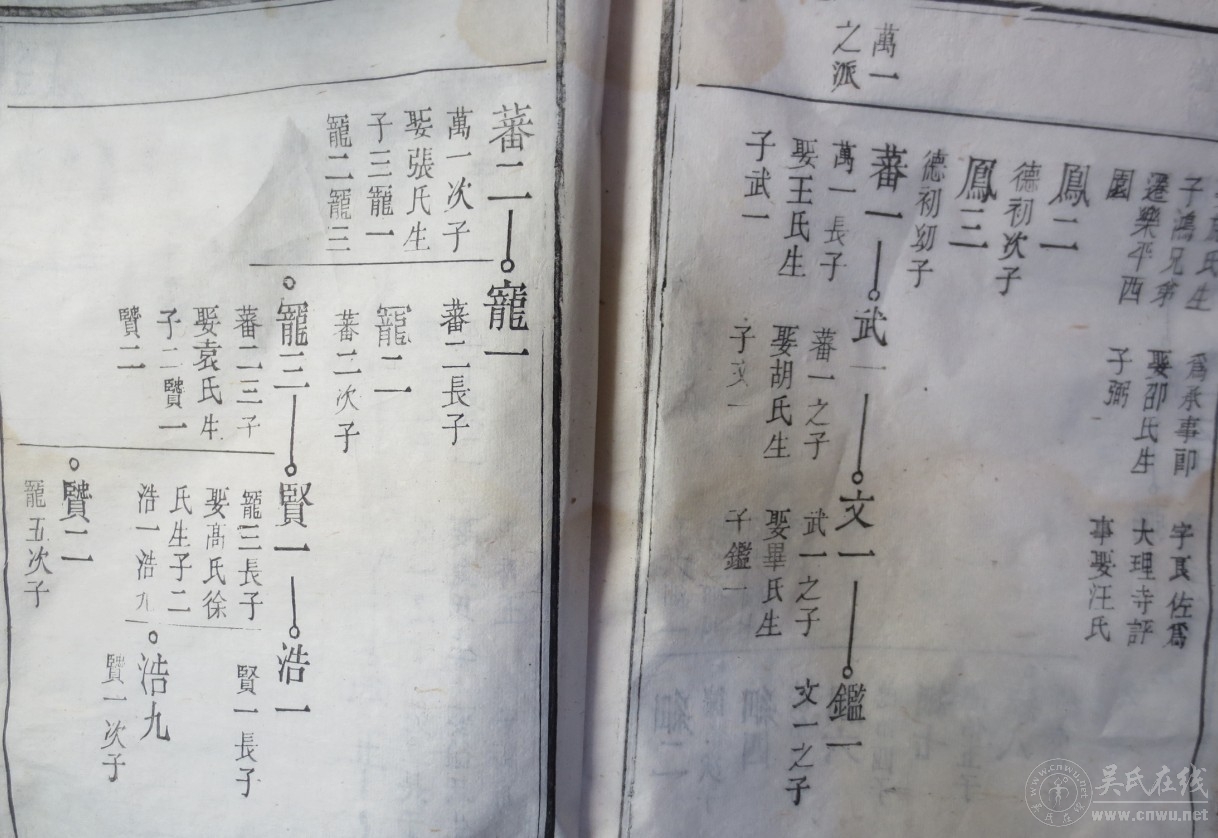 萬一
之派
氏生
子鴻兄弟
遷樂平西
園
鳳二
德初次子
鳳三
德初幼子
蕃一
萬一長子
娶王氏生
子武一
為承事郎
娶邵氏生
子弼
武一
蕃一之子
娶胡氏生
子文一
字良佐為
大理寺評
事娶汪氏
文一
武一之子
娶畢氏生
子鑑一
鑑一
文一之子
蕃二
萬一次子
娶張氏生
子三寵一
寵二寵三
寵一
蕃二長子
寵二
蕃二次子
寵三
蕃二三子
娶袁氏生
子二賢一
賢二
賢一
寵三長子
娶高氏徐
氏生子二
浩一浩九
賢二
寵五次子
浩一
賢一長子
浩九
賢一次子
吴氏在线
www.cnwu.net